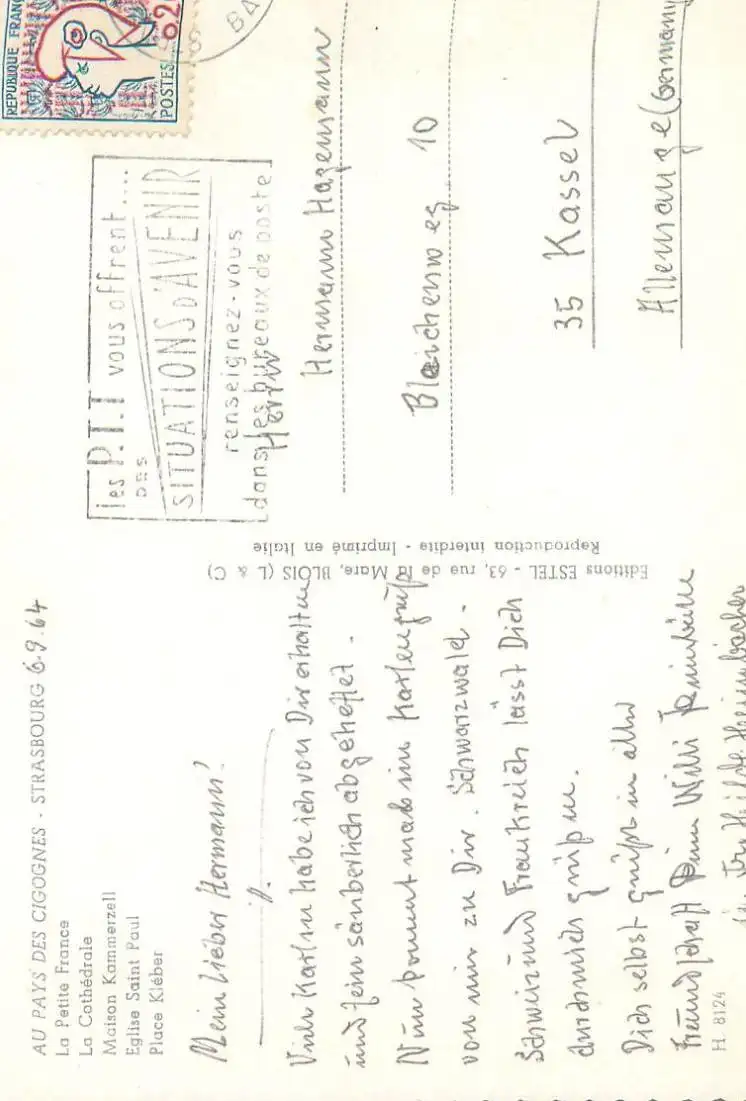 AU PAYS DES CIGOGNES - STRASBOURG 6.9.64
La Petite France
La Cathédrale
Maison Kammerzell
Eglise Saint Paul
Place Kléber
Mein lieber Hermann!
Viele Karten habe ich von Dir erhalten
und fein säuberlich abgeheftet.
Nun kommt mal ein Kartengruß
von mir zu Dir. Schwarzwald.
Schweiz und Frankreich lässt Dich
durch mich grüßen.
Dich selbst grüßt in alter
Freundschaft Dein Willi
H. 8124
Editions ESTEL - 63, rue de la Mare, BLOIS (L & C)
Reproduction interdite - Imprimé en Italie
REPUBLIQUE FRANÇ
POSTES
les P.T.T vous offrent....
DES
SITUATIONS D'AVENIR
renseignez-vous
dans les bureaux de poste
Herrn
Hermann Hagemann
Bleichenweg 10
35 Kassel
Allemange (Germany